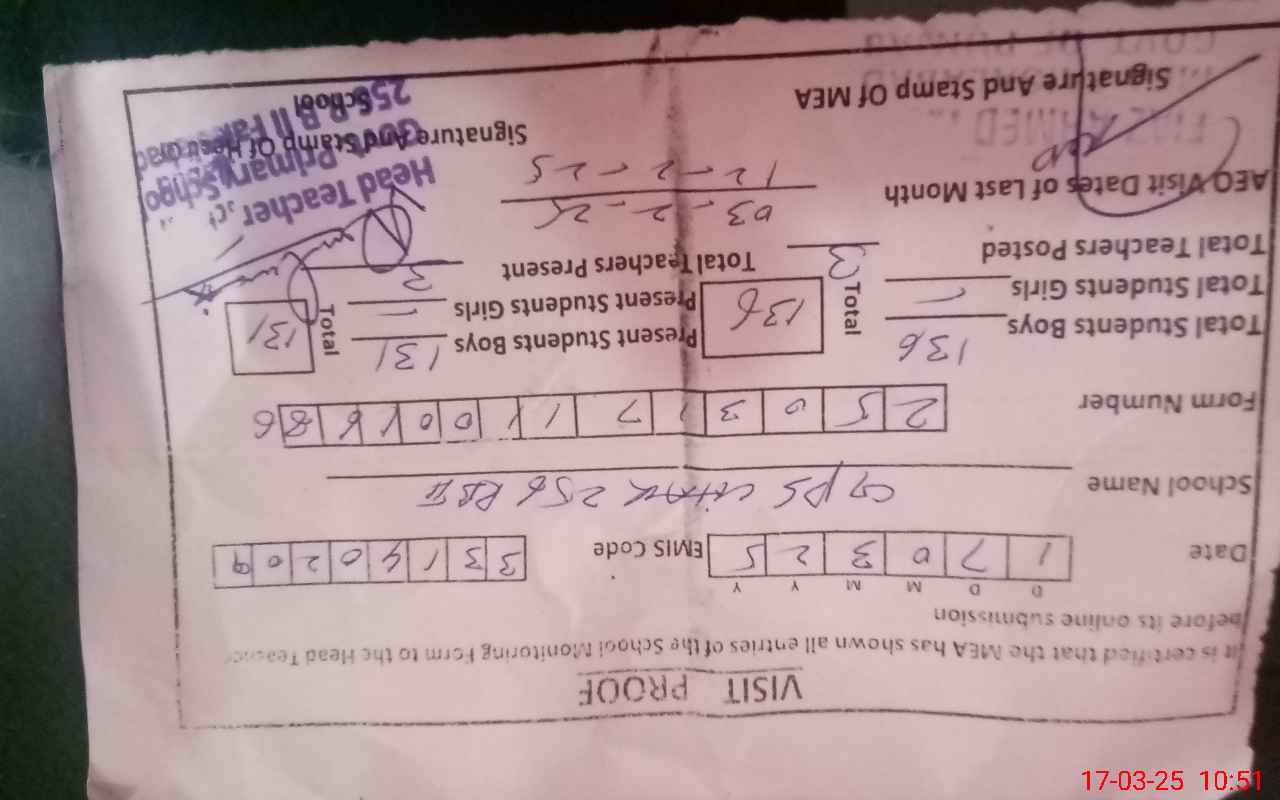 VISIT PROOF
It is certified that the MEA has shown all entries of the School Monitoring Form to the Head Teacher
before its online submission
D D M M Y Y
Date 1 7 0 3 2 5 EMIS Code 3 3 1 4 0 2 0 9
School Name GPS CHAK 256 RB II
Form Number 2 5 0 3 1 7 1 1 0 0 1 6 8 6
Total Students Boys 136 Total 136 Present Students Boys 131 Total 131
Total Students Girls - Present Students Girls -
Total Teachers Posted 3 Total Teachers Present 3
AEO Visit Dates of Last Month 03-2-25
12-2-25
Signature And Stamp Of MEA
Signature And Stamp Of Head
School
Head Teacher,
Govt. Primary School
256 R.B II
17-03-25 10:51